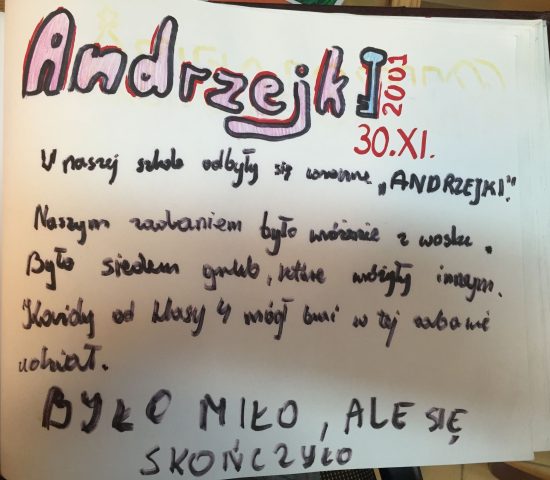 AndrzejkI
2001
30.XI.
W naszej szkole odbyły się "ANDRZEJKI".
Naszym zadaniem było wróżenie z wosku.
Było siedem grub, które wróżyły innym.
Każdy od klasy 4 mógł brać w tej zabawie
udział.
BYŁO MIŁO, ALE SIĘ
SKOŃCZYŁO